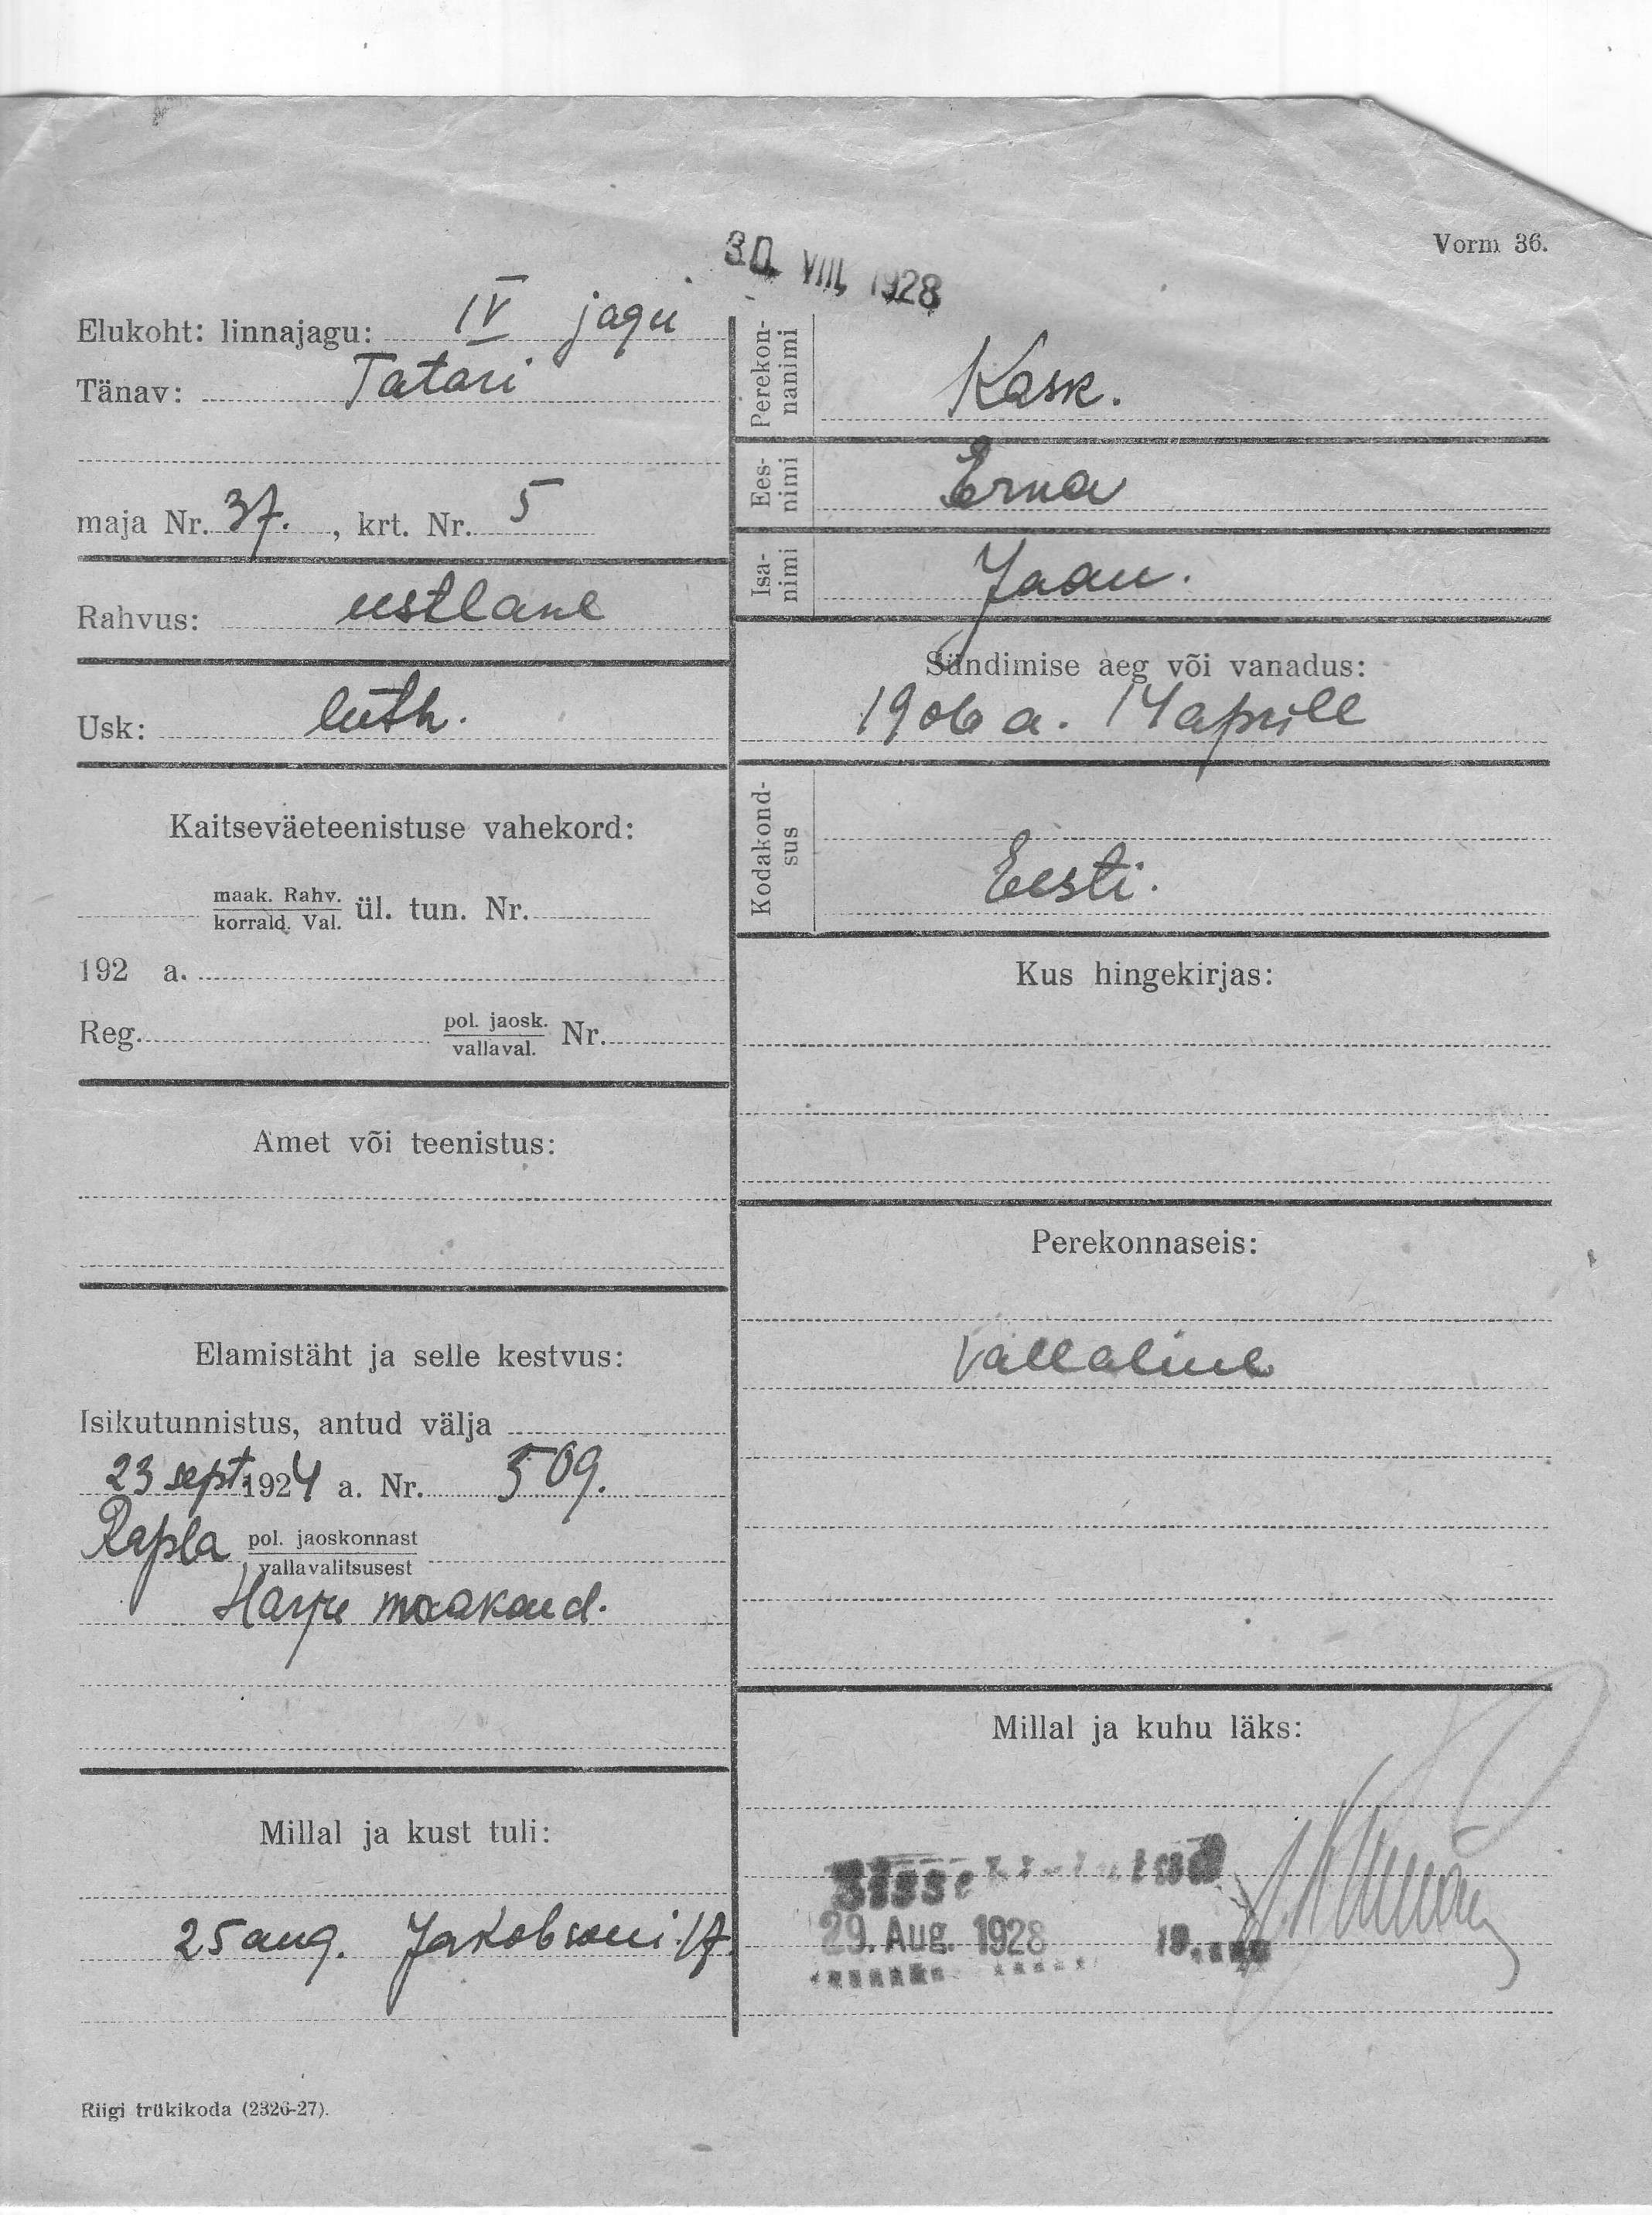 30. VIII, 1928
Vorm 36.
Elukoht: linnajagu: IV jagu
Tänav: Tatari
maja Nr. 37. , krt. Nr. 5
Rahvus: eestlane
Usk: luth.
Kaitseväeteenistuse vahekord:
maak. Rahv.
korrald. Val. ül. tun. Nr.
192 a.
Reg. pol. jaosk.
vallaval. Nr.
Amet või teenistus:
Elamistäht ja selle kestvus:
Isikutunnistus, antud välja
23 sept. 1924 a. Nr. 509.
Rapla pol. jaoskonnast
vallavalitsusest
Harju maakond.
Millal ja kust tuli:
25 aug. Jakobsoni 17
Riigi trükikoda (2326-27).
Perekon-
nanimi Kask.
Ees-
nimi Erna
Isa-
nimi Jaan.
Sündimise aeg või vanadus:
1906 a. 14 aprill
Kodakond-
sus Eesti.
Kus hingekirjas:
Perekonnaseis:
Vallaline
Millal ja kuhu läks:
29. Aug. 1928 19